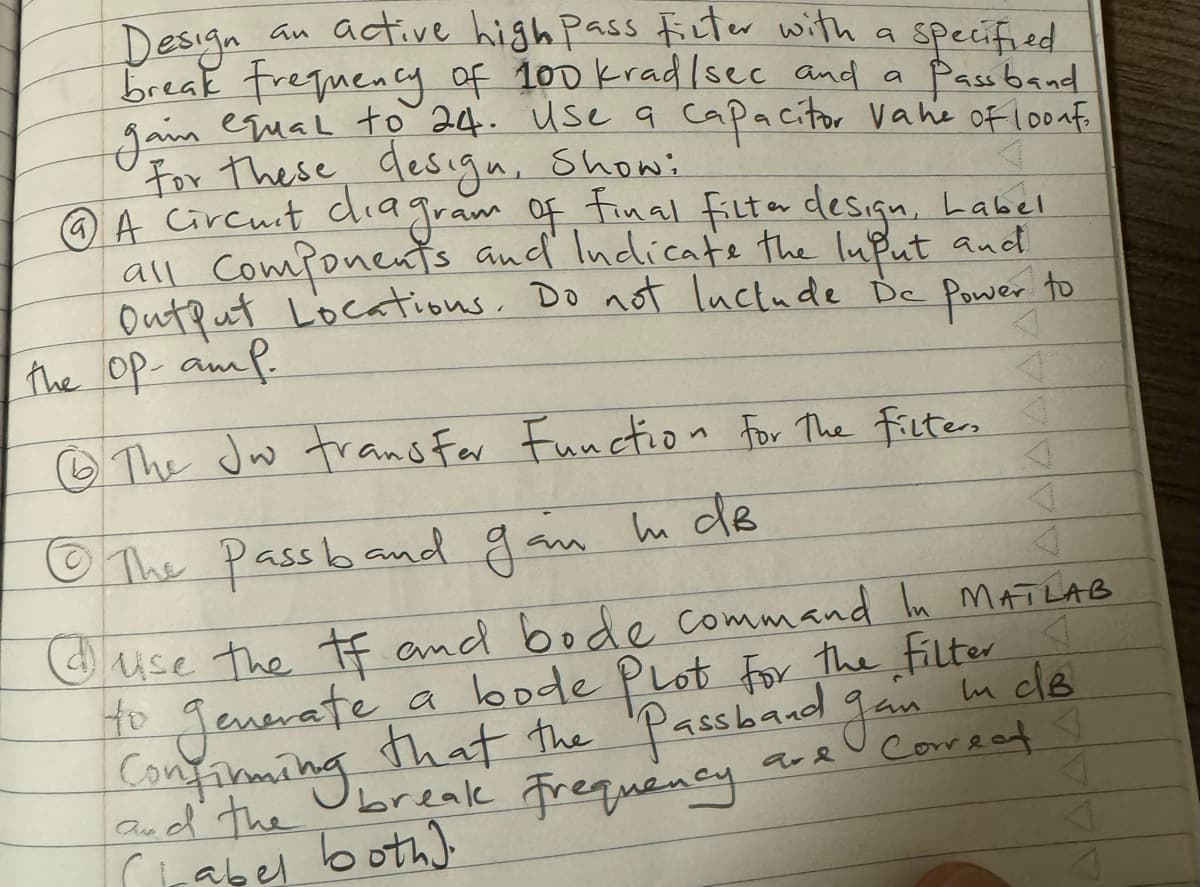 Design an active high pass Filter with a specified
break frequency of 100 krad/sec and a Passband
gain equal to 24. Use a capacitor value of 100nf.
For these design, Show:
(a) A Circuit diagram of final filter design, Label
all components and Indicate the Input and
Output Locations. Do not Include Dc Power to
the op-amp.
(b) The Jw transfer Function for the filter.
(c) The Passband gain In dB
(d) use the tf and bode command In MATLAB
to generate a bode Plot for the filter
Confirming that the Passband gain In dB
and the break frequency are correct
(Label both).